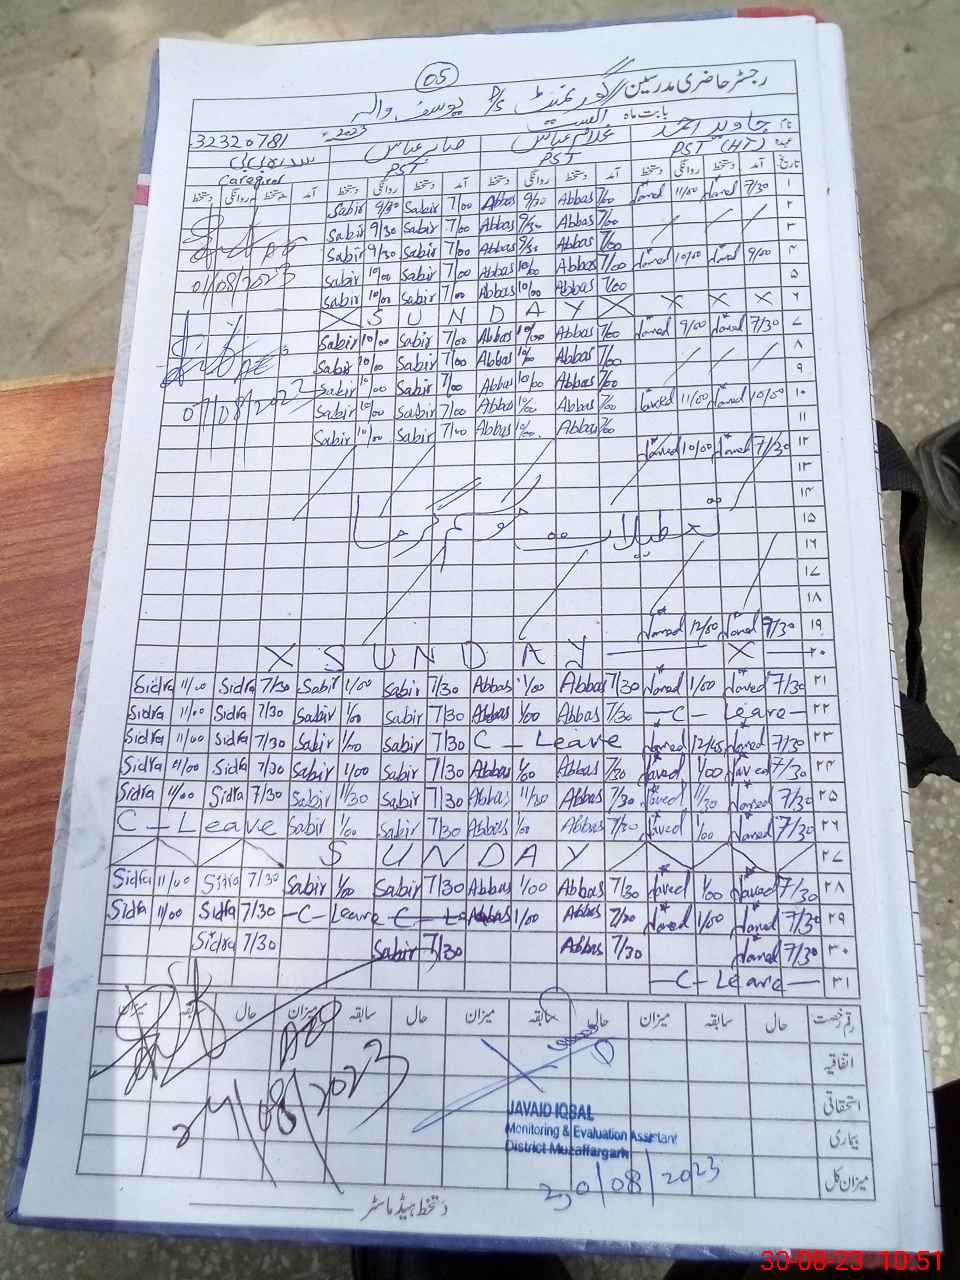 05
رجسٹر حاضری مدرسین گورنمنٹ P/S یوسف والہ
بابت ماہ اگست 2023ء 32320781
نام جاوید احمد غلام عباس صابر عباس سدرہ بی بی
عہدہ PST (HT) PST PST Caregiver
تاریخ آمد دستخط روانگی دستخط آمد دستخط روانگی دستخط آمد دستخط روانگی دستخط آمد دستخط روانگی دستخط
۱ 7/30 Javed 11/00 Javed 7/00 Abbas 9/30 Abbas 7/00 Sabir 9/30 Sabir
۲ 7/00 Abbas 9/30 Abbas 7/00 Sabir 9/30 Sabir
۳ 7/00 Abbas 9/30 Abbas 7/00 Sabir 9/30 Sabir
۴ 9/00 Javed 10/00 Javed 7/00 Abbas 10/00 Abbas 7/00 Sabir 10/00 Sabir 01/08/2023
۵ 7/00 Abbas 10/00 Abbas 7/00 Sabir 10/00 Sabir
۶ X S U N D A Y X X X X
۷ 7/30 Javed 9/00 Javed 7/00 Abbas 10/00 Abbas 7/00 Sabir 10/00 Sabir
۸ 7/00 Abbas 10/00 Abbas 7/00 Sabir 10/00 Sabir
۹ 7/00 Abbas 10/00 Abbas 7/00 Sabir 10/00 Sabir
۱۰ 10/00 Javed 11/00 Javed 7/00 Abbas 10/00 Abbas 7/00 Sabir 10/00 Sabir 07/08/2023
۱۱ 7/00 Abbas 10/00 Abbas 7/00 Sabir 10/00 Sabir
۱۲ 7/30 Javed 10/00 Javed
۱۳
۱۴
تعطیلات موسم گرما
۱۵
۱۶
۱۷
۱۸
۱۹ 7/30 Javed 12/00 Javed
۲۰ X S U N D A Y X
۲۱ 7/30 Javed 1/00 Javed 7/30 Abbas 1/00 Abbas 7/30 Sabir 1/00 Sabir 7/30 Sidra 11/00 Sidra
۲۲ C - Leave 7/30 Abbas 1/00 Abbas 7/30 Sabir 1/00 Sabir 7/30 Sidra 11/00 Sidra
۲۳ 7/30 Javed 12/45 Javed C - Leave 7/30 Sabir 1/00 Sabir 7/30 Sidra 11/00 Sidra
۲۴ 7/30 Javed 1/00 Javed 7/30 Abbas 1/00 Abbas 7/30 Sabir 1/00 Sabir 7/30 Sidra 11/00 Sidra
۲۵ 7/30 Javed 11/30 Javed 7/30 Abbas 11/30 Abbas 7/30 Sabir 11/30 Sabir 7/30 Sidra 11/00 Sidra
۲۶ 7/30 Javed 1/00 Javed 7/30 Abbas 1/00 Abbas 7/30 Sabir 1/00 Sabir C - Leave
۲۷ S U N D A Y
۲۸ 7/30 Javed 1/00 Javed 7/30 Abbas 1/00 Abbas 7/30 Sabir 1/00 Sabir 7/30 Sidra 11/00 Sidra
۲۹ 7/30 Javed 1/00 Javed 7/30 Abbas 1/00 Abbas C - Leave - C - Leave 7/30 Sidra 11/00 Sidra
۳۰ 7/30 Javed 7/30 Abbas 7/30 Sabir 7/30 Sidra
۳۱ - C - Leave -
رقم رخصت حال سابقہ میزان حال سابقہ میزان حال سابقہ میزان حال سابقہ میزان
اتفاقیہ
استحقاقی
بیماری
میزان کل
JAVAID IQBAL
Monitoring & Evaluation Assistant
District Muzaffargarh
30/08/2023
دستخط ہیڈ ماسٹر
30-08-23 10:51